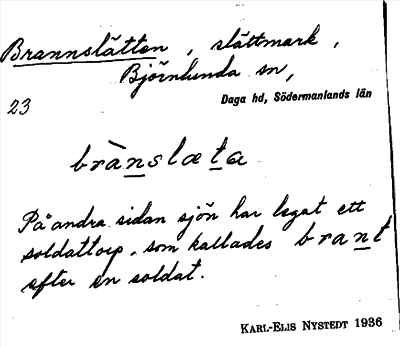 Brannslätten, slättmark,
Björnlunda sn,
23
Daga hd, Södermanlands län
brànslæta
På andra sidan sjön har legat ett
soldattorp, som kallades brant
efter en soldat.
KARL-ELIS NYSTEDT 1936